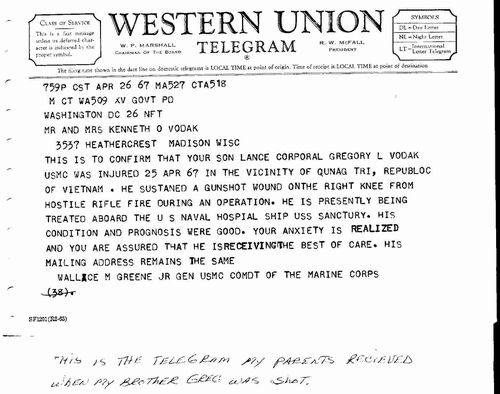 CLASS OF SERVICE
This is a fast message
unless its deferred char-
acter is indicated by the
proper symbol.
WESTERN UNION
TELEGRAM
W. P. MARSHALL
CHAIRMAN OF THE BOARD
R. W. McFALL
PRESIDENT
SYMBOLS
DL = Day Letter
NL = Night Letter
LT = International Letter Telegram
The filing time shown in the date line on domestic telegrams is LOCAL TIME at point of origin. Time of receipt is LOCAL TIME at point of destination
759P CST APR 26 67 MA527 CTA518
M CT WA509 XV GOVT PD
WASHINGTON DC 26 NFT
MR AND MRS KENNETH O VODAK
3537 HEATHERCREST MADISON WISC
THIS IS TO CONFIRM THAT YOUR SON LANCE CORPORAL GREGORY L VODAK
USMC WAS INJURED 25 APR 67 IN THE VICINITY OF QUNAG TRI, REPUBLOC
OF VIETNAM . HE SUSTANED A GUNSHOT WOUND ONTHE RIGHT KNEE FROM
HOSTILE RIFLE FIRE DURING AN OPERATION. HE IS PRESENTLY BEING
TREATED ABOARD THE U S NAVAL HOSPIAL SHIP USS SANCTURY. HIS
CONDITION AND PROGNOSIS WERE GOOD. YOUR ANXIETY IS REALIZED
AND YOU ARE ASSURED THAT HE ISRECEIVINGTHE BEST OF CARE. HIS
MAILING ADDRESS REMAINS THE SAME
WALLACE M GREENE JR GEN USMC COMDT OF THE MARINE CORPS
(38).
SF1201(R2-65)
THIS IS THE TELEGRAM MY PARENTS RECIEVED
WHEN MY BROTHER GREG WAS SHOT.